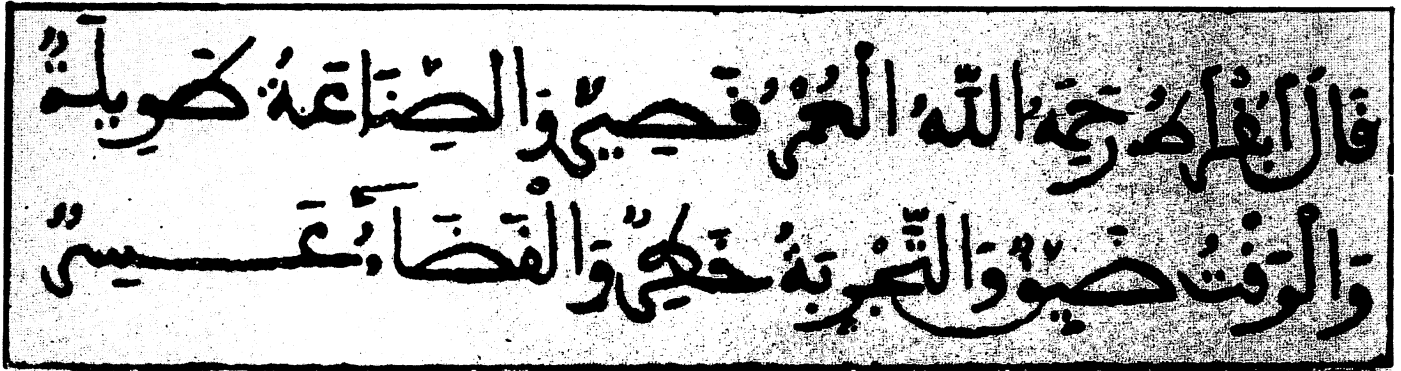 قَالَ اَبُقْرَاطُ رَحِمَهُ اللّٰهُ الْعُمْرُ قَصِيرٌ وَالصِّنَاعَةُ طَوِيلَةٌ
وَالْوَقْتُ ضَيِّقٌ وَالتَّجْرِبَةُ خَطِرٌ وَالْقَضَاءُ عَسِرٌ